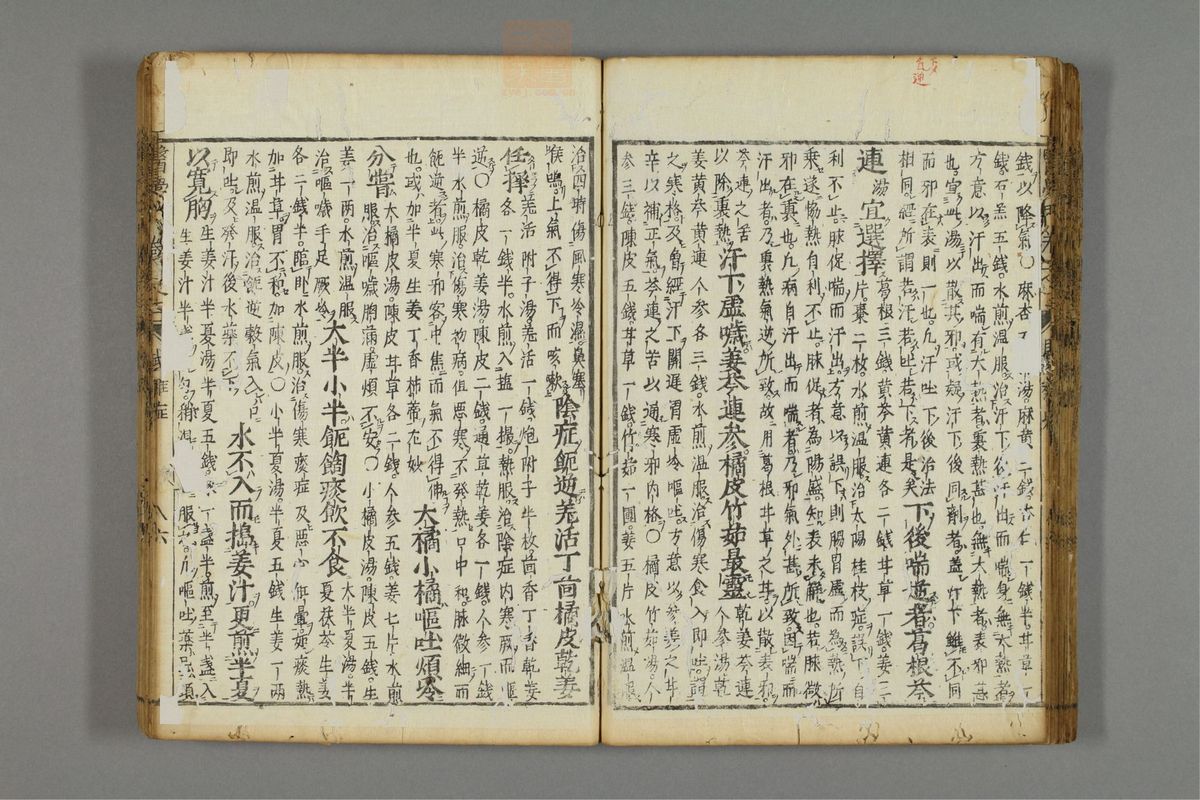 錢以降氣○麻杏 湯麻黃二錢杏仁一錢半甘草一
錢石羔五錢水煎溫服治汗下後汗出而喘身無大熱者
方意以汗出而喘有大熱者裏熱甚也無大熱者表邪甚
也宜此湯以散其邪或疑汗下後同劑者蓋汗下雖不同
而邪在表則一也凡汗吐下後治法
相同經所謂若汗若吐若下者是矣下後喘逆者葛根芩
連湯宜選擇葛根三錢黃芩黃連各二錢甘草一錢姜二
片棗二枚水煎溫服治太陽桂枝症誤下自
利不止脉促喘而汗出方意以誤下則腸胃虛而為熱所
乗遂協熱自利不止脉促者為陽盛知表未觧也若脉微
邪在裏也凡病自汗出而喘者乃邪氣外甚所致因喘而
汗出者乃裏熱氣逆所致故用葛根甘草之甘以散表邪
芩連之苦以除裏熱汗下虛噦姜芩連參橘皮竹茹最靈乾姜芩連
人參湯乾
姜黃芩黃連人參各三錢水煎溫服治傷寒食入即吐謂
之寒格及曾經汗下關遲胃虛冷嘔吐方意以參姜之甘
辛以補正氣芩連之苦以通寒邪內格○橘皮竹茹湯人
參三錢陳皮五錢甘草一錢竹茹一團姜五片水煎溫服
治四時傷風寒冷濕鼻塞
喉鳴上氣不得下而咳噦陰症飽逆羌活丁茴橘皮乾姜
任擇羌活附子湯羌活一錢炮附子半枚茴香丁香乾姜
各一錢半水煎入 一撮熱服治陰症內寒厥而
逆○橘皮乾姜湯陳皮二錢通草乾姜各一錢人參一錢
半水煎服治傷寒初病但惡寒不発熱口中和脉微細而
飽逆者此寒邪客中焦而氣不得伸
也或加半夏生姜丁香柿蒂尤妙大橘小橘嘔吐煩冷
分嘗大橘皮湯陳皮甘草各二錢人參五錢姜七片水煎
服治嘔噦胸滿虛煩不安○小橘皮湯陳皮五錢生
姜一兩水煎溫服
治嘔噦手足厥冷大半小半飽悶痰飲不食大半夏湯半
夏茯苓生姜
各二錢半臨卧水煎服治傷寒痰症及惡心 痰熱
加甘草胃不和加陳皮○小半夏湯半夏五錢生姜一兩
水煎溫服治飽逆穀氣入口
即吐及発汗後水藥不下水不入而搗姜汁更煎半夏
以寬胸生姜汁半夏湯半夏五錢水一盞半煎至半盞入
生姜汁半 服 凡嘔吐藥 須